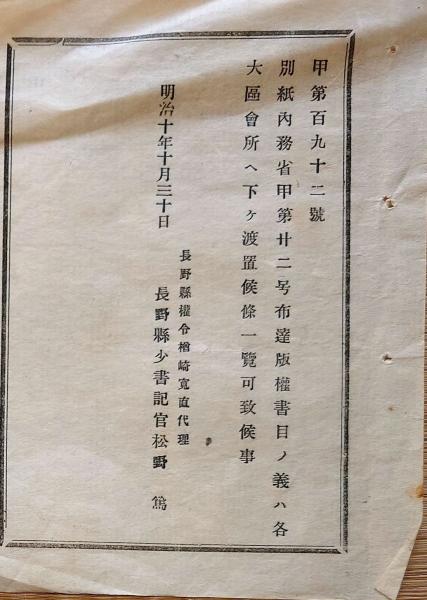 甲第百九十二號
別紙內務省甲第廿二号布達版權書目ノ義ハ各
大區會所ヘ下ケ渡置候條一覽可致候事
明治十年十月三十日
長野縣權令楢崎寬直代理
長野縣少書記官松野篤